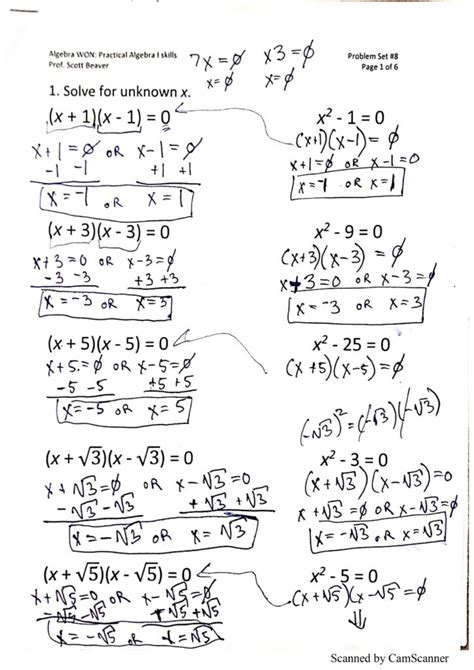 Algebra WON: Practical Algebra I skills
Prof. Scott Beaver
7x=∅ x3=∅
x=∅ x=∅
Problem Set #8
Page 1 of 6
1. Solve for unknown x.
(x + 1)(x - 1) = 0
x+1=∅ OR x-1=∅
-1 -1 +1 +1
x=-1 OR x=1
x² - 1 = 0
(x+1)(x-1)=∅
x+1=∅ OR x-1=0
x=-1 OR x=1
(x + 3)(x - 3) = 0
x+3=0 OR x-3=0
-3 -3 +3 +3
x=-3 OR x=3
x² - 9 = 0
(x+3)(x-3)=∅
x+3=0 OR x-3=∅
x=-3 OR x=3
(x + 5)(x - 5) = 0
x+5=∅ OR x-5=∅
-5 -5 +5 +5
x=-5 OR x=5
x² - 25 = 0
(x+5)(x-5)=∅
(-√3)²=(-√3)(-√3)
(x + √3)(x - √3) = 0
x+√3=∅ OR x-√3=0
-√3 -√3 +√3 +√3
x=-√3 OR x=√3
x² - 3 = 0
(x+√3)(x-√3)=0
x+√3=∅ OR x-√3=0
x=-√3 OR x=√3
(x + √5)(x - √5) = 0
x+√5=0 OR x-√5=∅
-√5 -√5 +√5 +√5
x=-√5 OR x=√5
x² - 5 = 0
(x+√5)(x-√5)=∅
⇓
Scanned by CamScanner